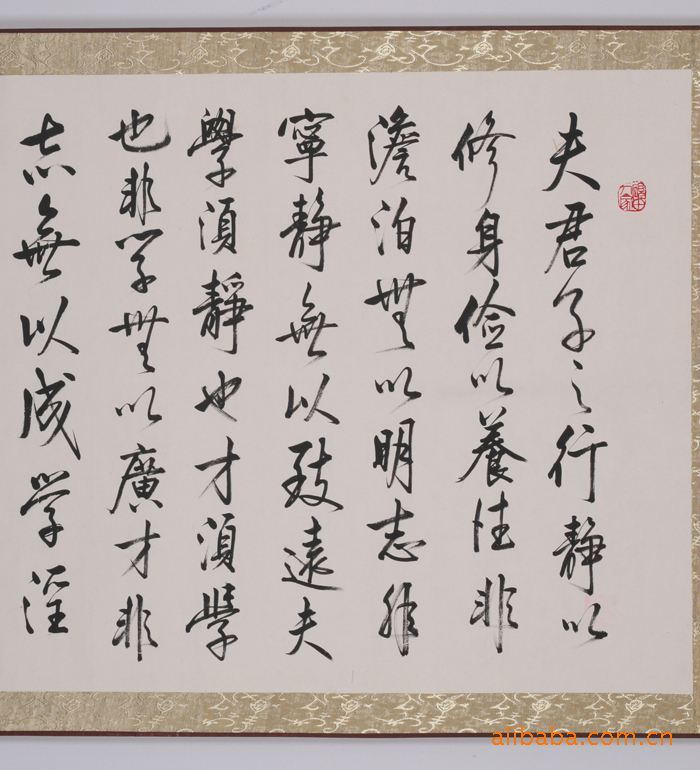 夫君子之行静以
修身俭以養性非
澹泊無以明志非
寧静無以致遠夫
學須静也才須學
也非学無以廣才非
志無以成学淫
alibaba.com.cn